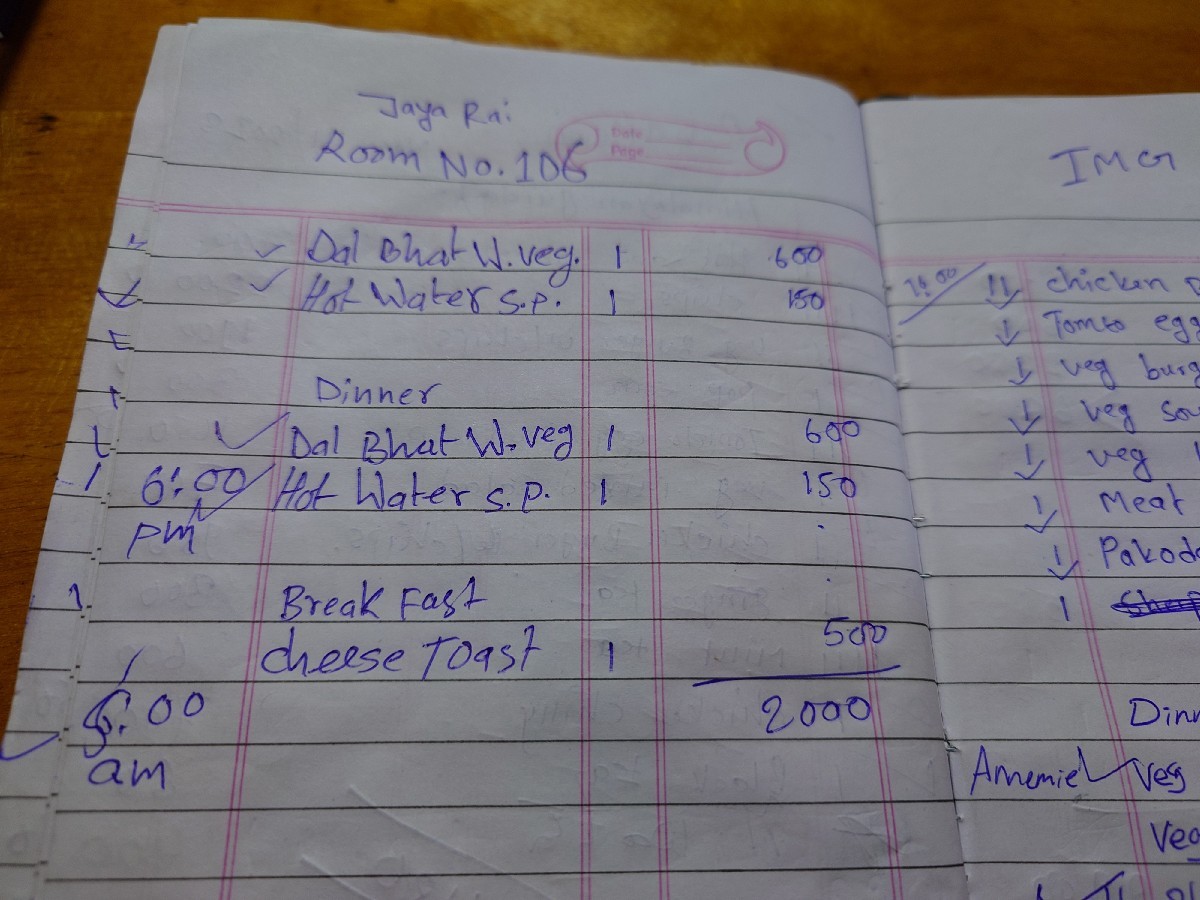 Jaya Rai
Room No. 106
Date
Page
Dal Bhat W. veg. 1 600
Hot Water s.p. 1 150
Dinner
Dal Bhat W. veg 1 600
6:00 pm Hot Water s.p. 1 150
Break Fast
cheese Toast 1 500
:00 am 2000
IMG
chicken
Tomto egg
veg burg
veg sou
veg
Meat
Pakoda
Dinn
veg
Veg